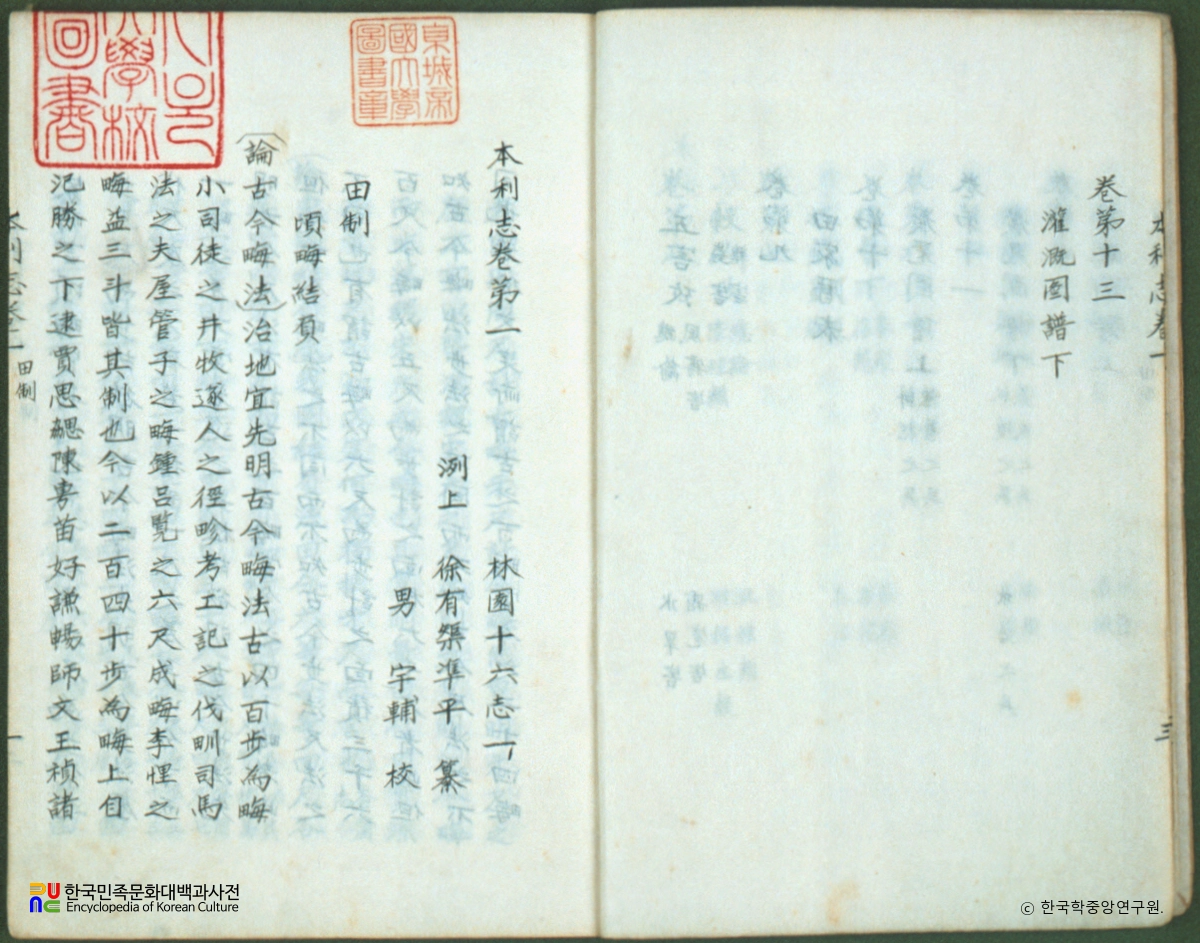 卷第十三
灌漑圖譜下
三
本利志卷第一 林園十六志一
洌上 徐有榘準平 纂
男 宇輔 校
田制
頃畮結負
論古今畮法治地宜先明古今畮法古以百步為畮
小司徒之井牧遂人之徑畛考工記之伐甽司馬
法之夫屋管子之畮鍾呂覽之六尺成畮李悝之
畮益三斗皆其制也今以二百四十步為畮上自
氾勝之下逮賈思勰陳旉苗好謙暢師文王禎諸
田制
京城帝
國大學
圖書章
한국민족문화대백과사전
Encyclopedia of Korean Culture
ⓒ 한국학중앙연구원.